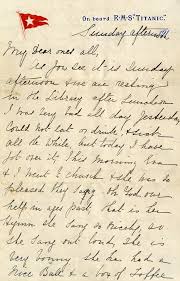 On board R.M.S. "TITANIC."
Sunday afternoon
My Dear ones all,
As you see it is Sunday
afternoon & we are resting
in the Library after Luncheon
I was very bad all day yesterday
Could not eat or drink, & sick
all the while, but today I have
got over it, This morning Eva
& I went to church & she was so
pleased they sang Oh God our
help in ages past, that is her
Hymn she sang so nicely, so
she sang out loudly She is
very bonny she has had a
nice Ball & a box of Toffee